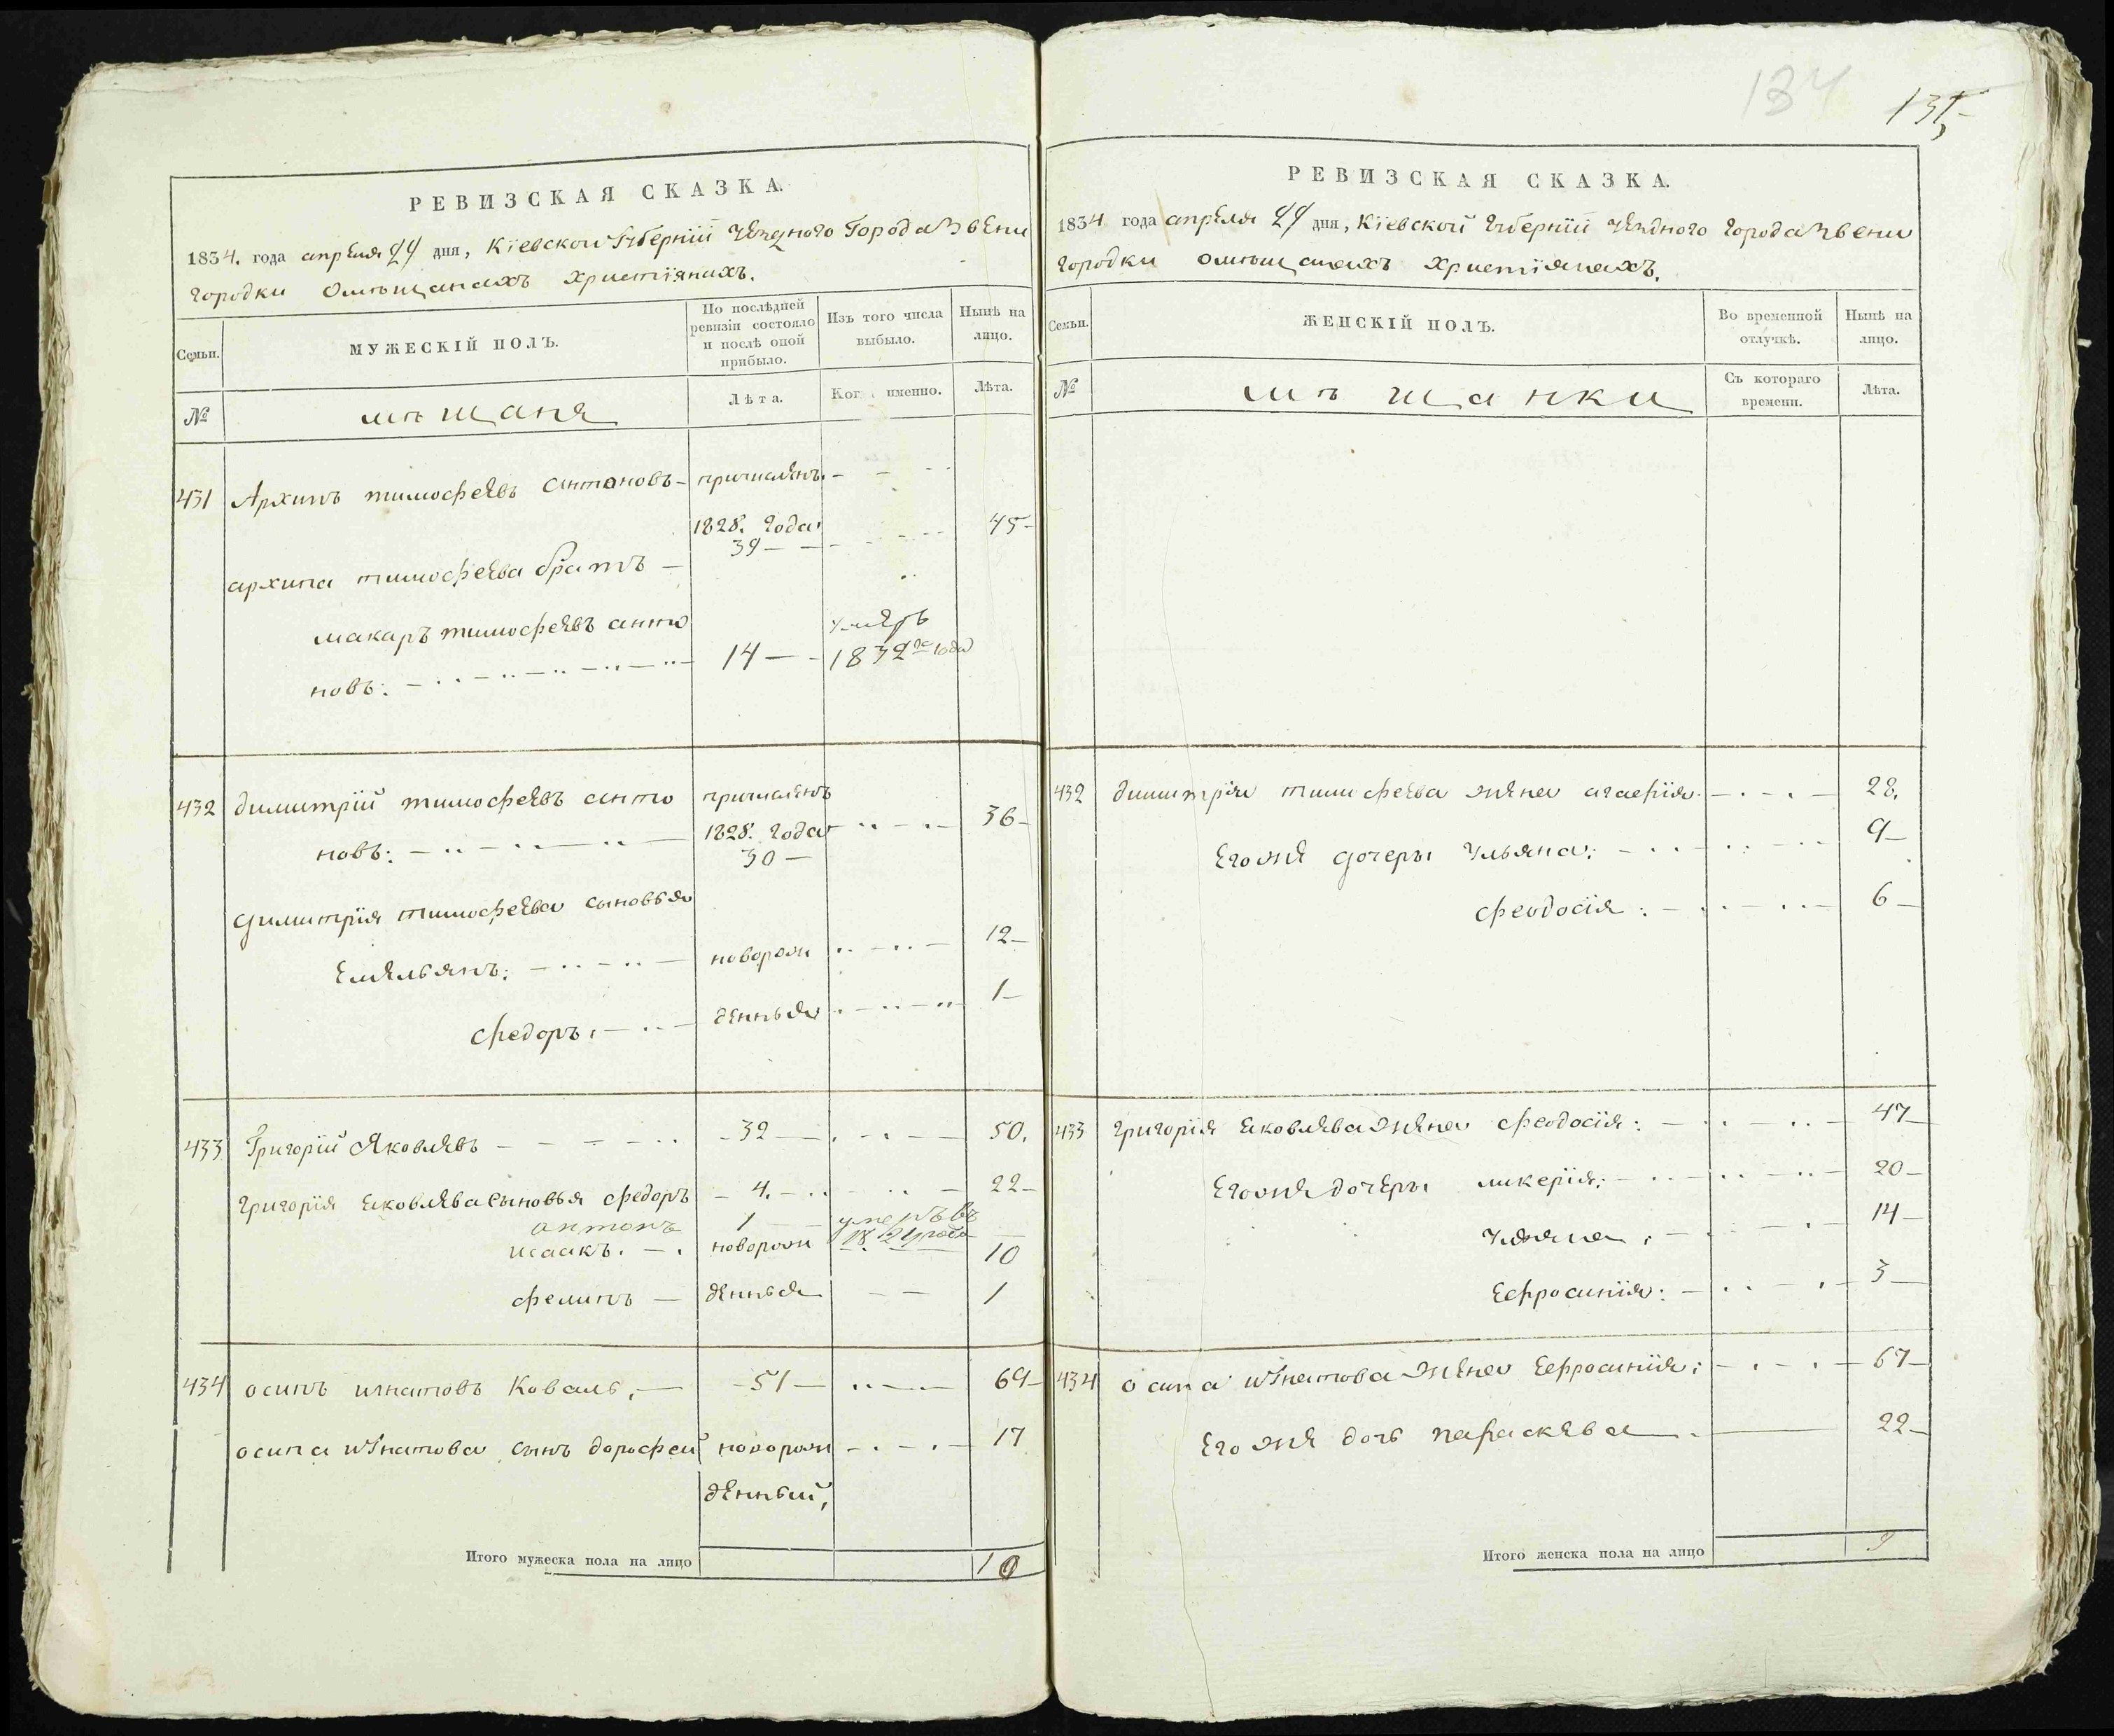 134
135
РЕВИЗСКАЯ СКАЗКА.
1834. года апреля 24 дня, Кіевской Губерніи уезднаго Города Звени
городки о мѣщанахъ христіянахъ.
Семьи.
МУЖЕСКІЙ ПОЛЪ.
По послѣдней ревизіи состояло и послѣ оной прибыло.
Изъ того числа выбыло.
Нынѣ на лицо.
№
мѣщаня
Лѣта.
Когда именно.
Лѣта.
431 Архипъ тимофеевъ антоновъ - причисленъ
1828. года
39 45
архипа тимофеева братъ
макаръ тимофеевъ анто умеръ
новъ: 14 1832го года
432 димитрій тимофеевъ анто причисленъ
новъ: 1828. года 36
30
димитрія тимофеева сыновья
Емельянъ: новорож 12
федоръ: денныя 1
433 Григорій Яковлевъ 32 50.
григорія яковлева сыновья федоръ 4. 22
антонъ 1 умеръ въ
исаакъ. новорож 1824 года 10
филипъ денныя 1
434 осипъ игнатовъ Коваль, 51 69
осипа игнатова сынъ дорофей новорож 17
денный,
Итого мужеска пола на лицо 10
РЕВИЗСКАЯ СКАЗКА.
1834 года апреля 24 дня, Кіевской Губерніи уездного города Звени
городки о мѣщанахъ христіянахъ.
Семьи.
ЖЕНСКІЙ ПОЛЪ.
Во временной отлучкѣ.
Нынѣ на лицо.
№
мѣщанки
Съ котораго времени.
Лѣта.
432 димитрія тимофеева жена агафія 28.
Его же дочеры ульяна: 9
феодосія: 6
433 григорія яковлева жена феодосія: 47
Его же дочеры ликерія: 20
ульяна, 14
Ефросинія: 3
434 осипа игнатова жена Ефросинія: 67
Его же дочь параскева 22
Итого женска пола на лицо 9